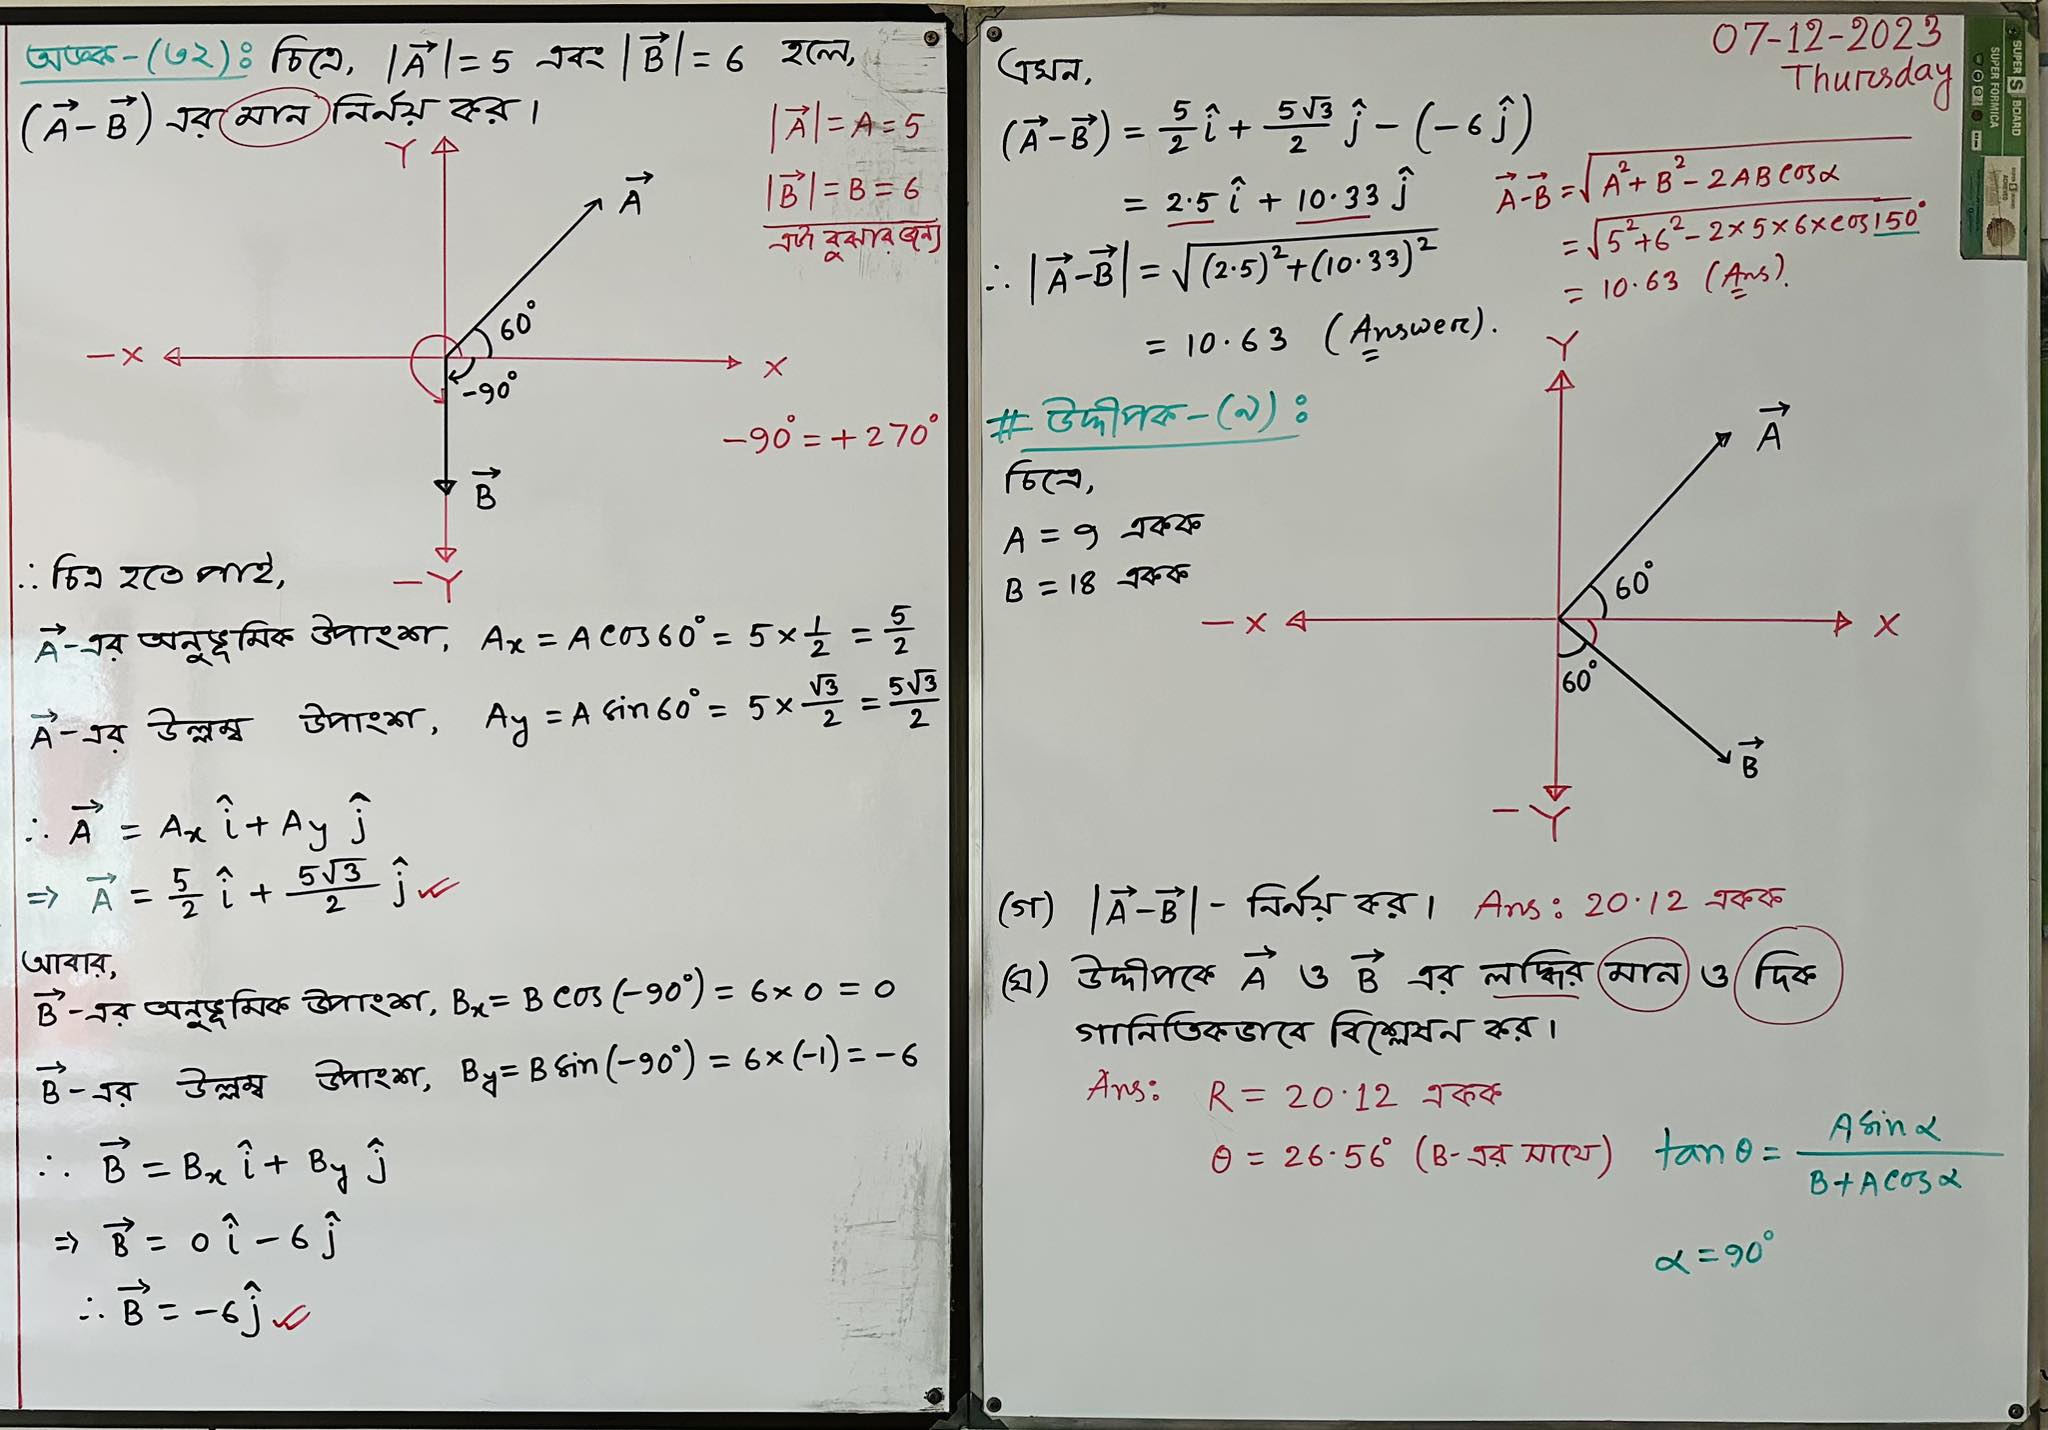 অংক-(৩২): চিত্রে, |A⃗|=5 এবং |B⃗|=6 হলে,
(A⃗-B⃗) এর মান নির্নয় কর।
|A⃗|=A=5
|B⃗|=B=6
এটা বুঝার জন্য
Y
A⃗
60°
-X
X
-90°
-90°=+270°
B⃗
-Y
∴ চিত্র হতে পাই,
A⃗-এর অনুভূমিক উপাংশ, Ax = A cos60° = 5×1/2 = 5/2
A⃗-এর উল্লম্ব উপাংশ, Ay = A sin60° = 5×√3/2 = 5√3/2
∴ A⃗ = Ax î + Ay ĵ
⇒ A⃗ = 5/2 î + 5√3/2 ĵ ✓
আবার,
B⃗-এর অনুভূমিক উপাংশ, Bx = B cos(-90°) = 6×0 = 0
B⃗-এর উল্লম্ব উপাংশ, By = B sin(-90°) = 6×(-1) = -6
∴ B⃗ = Bx î + By ĵ
⇒ B⃗ = 0 î - 6 ĵ
∴ B⃗ = -6 ĵ ✓
07-12-2023
Thursday
SUPER S BOARD
SUPER FORMICA
এখন,
(A⃗-B⃗) = 5/2 î + 5√3/2 ĵ - (-6 ĵ)
= 2.5 î + 10.33 ĵ
∴ |A⃗-B⃗| = √(2.5)²+(10.33)²
= 10.63 (Answer).
A⃗-B⃗ = √A²+B²-2AB cosα
= √5²+6²-2×5×6×cos150°
= 10.63 (Ans).
# উদ্দীপক-(১):
চিত্রে,
A = 9 একক
B = 18 একক
Y
A⃗
60°
-X
X
60°
B⃗
-Y
(গ) |A⃗-B⃗| - নির্নয় কর। Ans: 20.12 একক
(ঘ) উদ্দীপকে A⃗ ও B⃗ এর লব্ধির মান ও দিক
গানিতিকভাবে বিশ্লেষন কর।
Ans: R = 20.12 একক
θ = 26.56° (B-এর সাথে)
tanθ = A sinα / B + A cosα
α = 90°